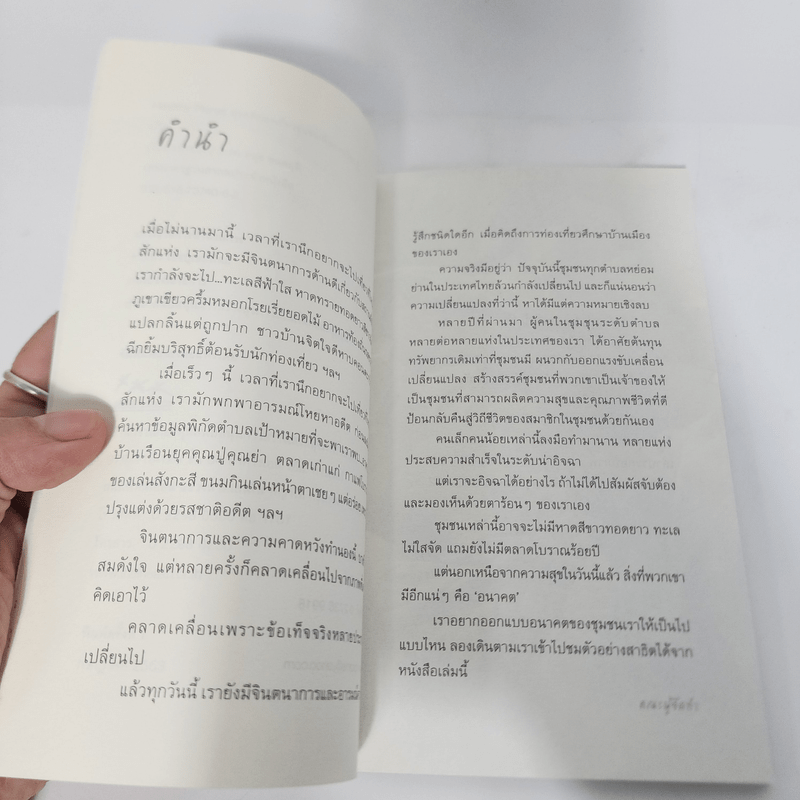 คำนำ
เมื่อไม่นานมานี้ เวลาที่เรานึกอยากจะไปเที่ยวที่ไหน
สักแห่ง เรามักจะมีจินตนาการด้านดีเกี่ยวกับ
เรากำลังจะไป...ทะเลสีฟ้าใส หาดทรายทอดยาว
ภูเขาเขียวครึ้มหมอกโรยเรี่ยยอดไม้ อาหารท้องถิ่น
แปลกลิ้นแต่ถูกปาก ชาวบ้านจิตใจดี
ฉีกยิ้มบริสุทธิ์ต้อนรับนักท่องเที่ยว ฯลฯ
เมื่อเร็วๆ นี้ เวลาที่เรานึกอยากจะไปเที่ยว
สักแห่ง เรามักพกพาอารมณ์โหยหาอดีต
ค้นหาข้อมูลพิกัดตำบลเป้าหมายที่จะพาเรา
บ้านเรือนยุคคุณปู่คุณย่า ตลาดเก่าแก่
ของเล่นสังกะสี ขนมกินเล่นหน้าตาเชยๆ แต่อร่อย
ปรุงแต่งด้วยรสชาติอดีต ฯลฯ
จินตนาการและความคาดหวังทำนองนี้
สมดังใจ แต่หลายครั้งก็คลาดเคลื่อนไปจาก
คิดเอาไว้
คลาดเคลื่อนเพราะข้อเท็จจริงหลาย
เปลี่ยนไป
แล้วทุกวันนี้ เรายังมีจินตนาการและ
รู้สึกชนิดใดอีก เมื่อคิดถึงการท่องเที่ยวศึกษาบ้านเมือง
ของเราเอง
ความจริงมีอยู่ว่า ปัจจุบันนี้ชุมชนทุกตำบลหย่อม
ย่านในประเทศไทยล้วนกำลังเปลี่ยนไป และก็แน่นอนว่า
ความเปลี่ยนแปลงที่ว่านี้ หาได้มีแต่ความหมายเชิงลบ
หลายปีที่ผ่านมา ผู้คนในชุมชนระดับตำบล
หลายต่อหลายแห่งในประเทศของเรา ได้อาศัยต้นทุน
ทรัพยากรเดิมเท่าที่ชุมชนมี ผนวกกับออกแรงขับเคลื่อน
เปลี่ยนแปลง สร้างสรรค์ชุมชนที่พวกเขาเป็นเจ้าของให้
เป็นชุมชนที่สามารถผลิตความสุขและคุณภาพชีวิตที่ดี
ป้อนกลับคืนสู่วิถีชีวิตของสมาชิกในชุมชนด้วยกันเอง
คนเล็กคนน้อยเหล่านี้ลงมือทำมานาน หลายแห่ง
ประสบความสำเร็จในระดับน่าอิจฉา
แต่เราจะอิจฉาได้อย่างไร ถ้าไม่ได้ไปสัมผัสจับต้อง
และมองเห็นด้วยตาร้อนๆ ของเราเอง
ชุมชนเหล่านี้อาจจะไม่มีหาดสีขาวทอดยาว ทะเล
ไม่ใสจัด แถมยังไม่มีตลาดโบราณร้อยปี
แต่นอกเหนือจากความสุขในวันนี้แล้ว สิ่งที่พวกเขา
มีอีกแน่ๆ คือ 'อนาคต'
เราอยากออกแบบอนาคตของชุมชนเราให้เป็นไป
แบบไหน ลองเดินตามเราเข้าไปชมตัวอย่างสาธิตได้จาก
หนังสือเล่มนี้
คณะผู้จัดทำ